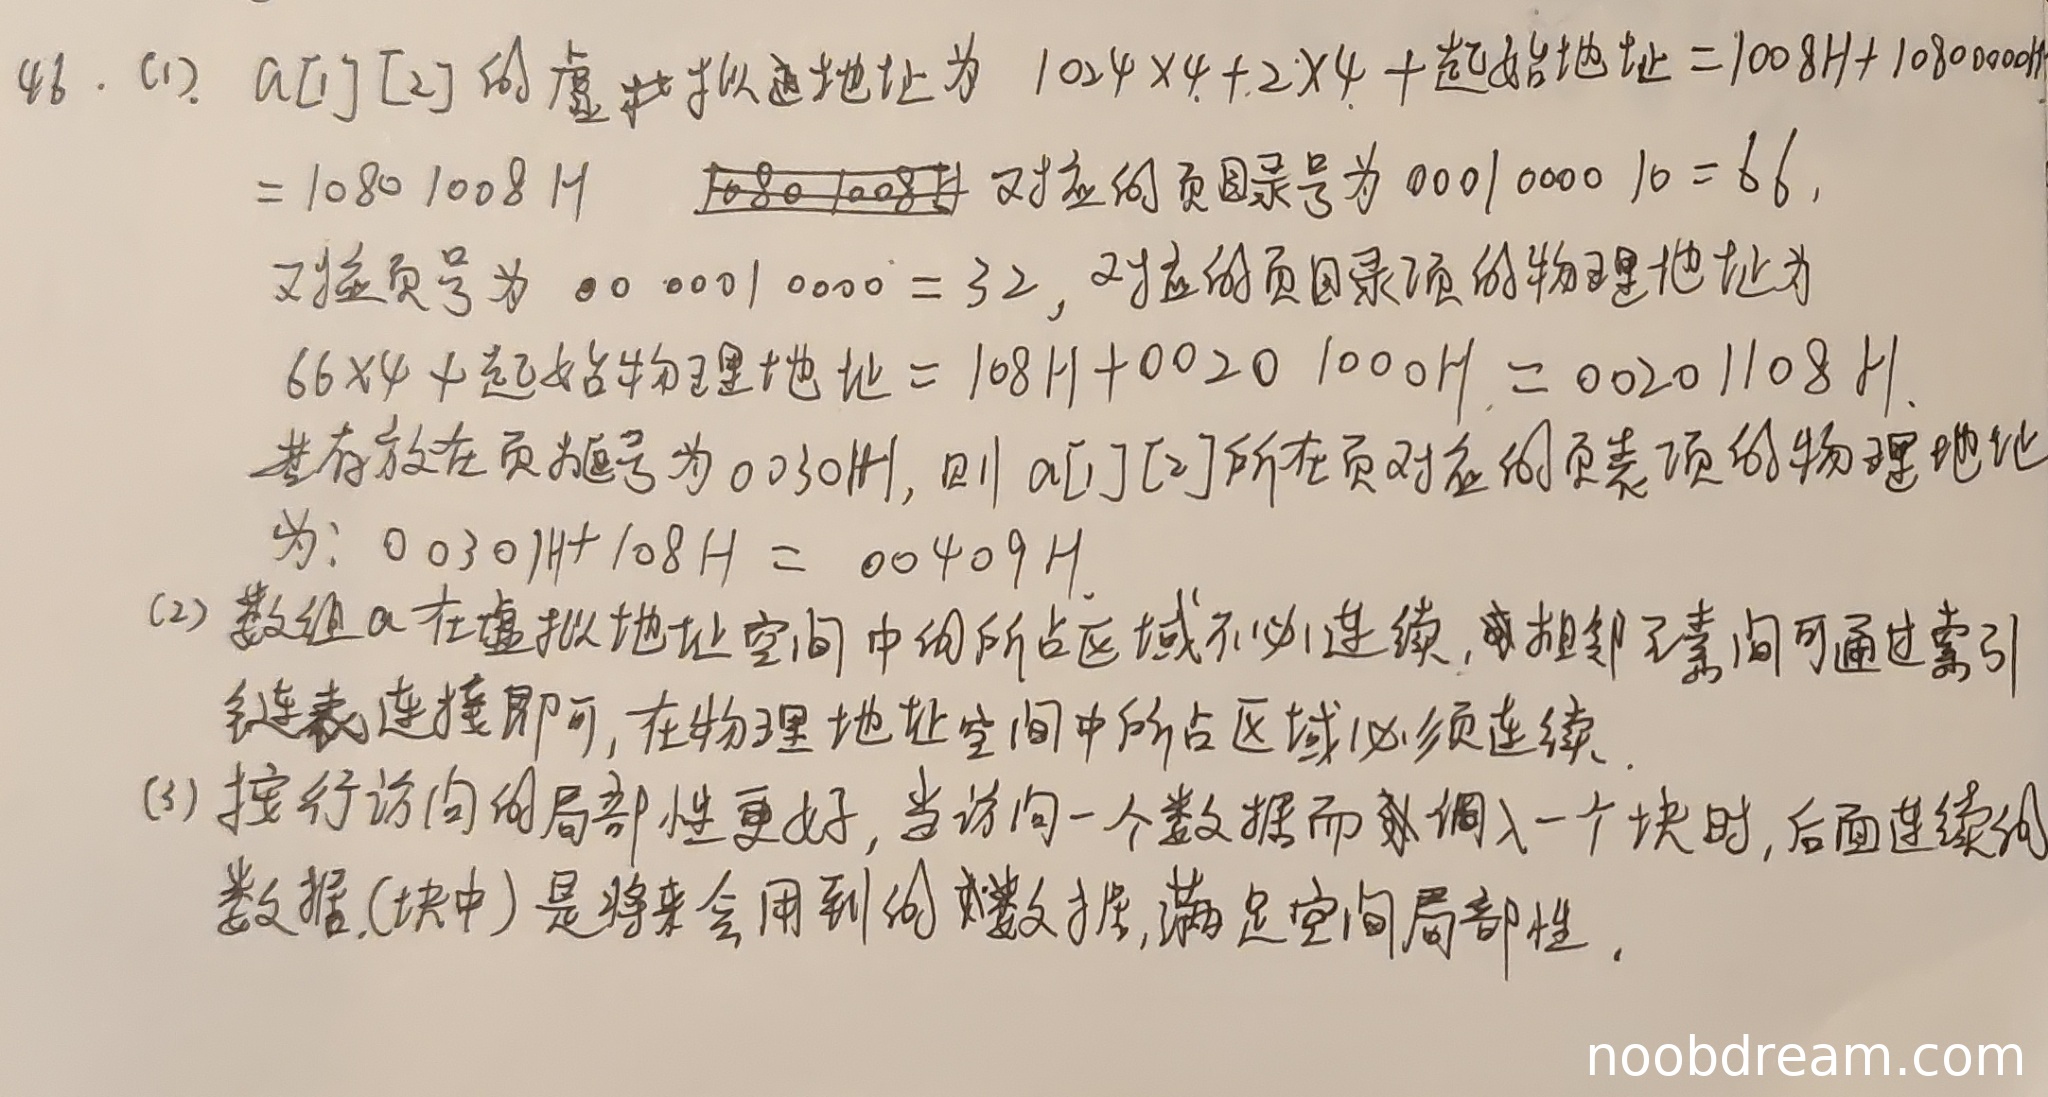 46. (1). a[1][2]的虚拟地址为 1024×4+2×4+起始地址=1008H+10800000H
=1080 1008H 1080 1008H 对应的页目录号为 0001 0000 10=66,
对应页号为 00 0001 0000=32, 对应的页目录项的物理地址为
66×4+起始物理地址=108H+0020 1000H=0020 1108H.
其存放在页框号为00301H, 则a[1][2]所在页对应的页表项的物理地址
为: 00301H+108H=00409H.
(2) 数组a在虚拟地址空间中的所占区域不必连续, 相邻元素间可通过索引
链表连接即可, 在物理地址空间中所占区域必须连续.
(3) 按行访问的局部性更好, 当访问一个数据而调入一个块时, 后面连续的
数据(块中)是将来会用到的数据, 满足空间局部性.
noobdream.com